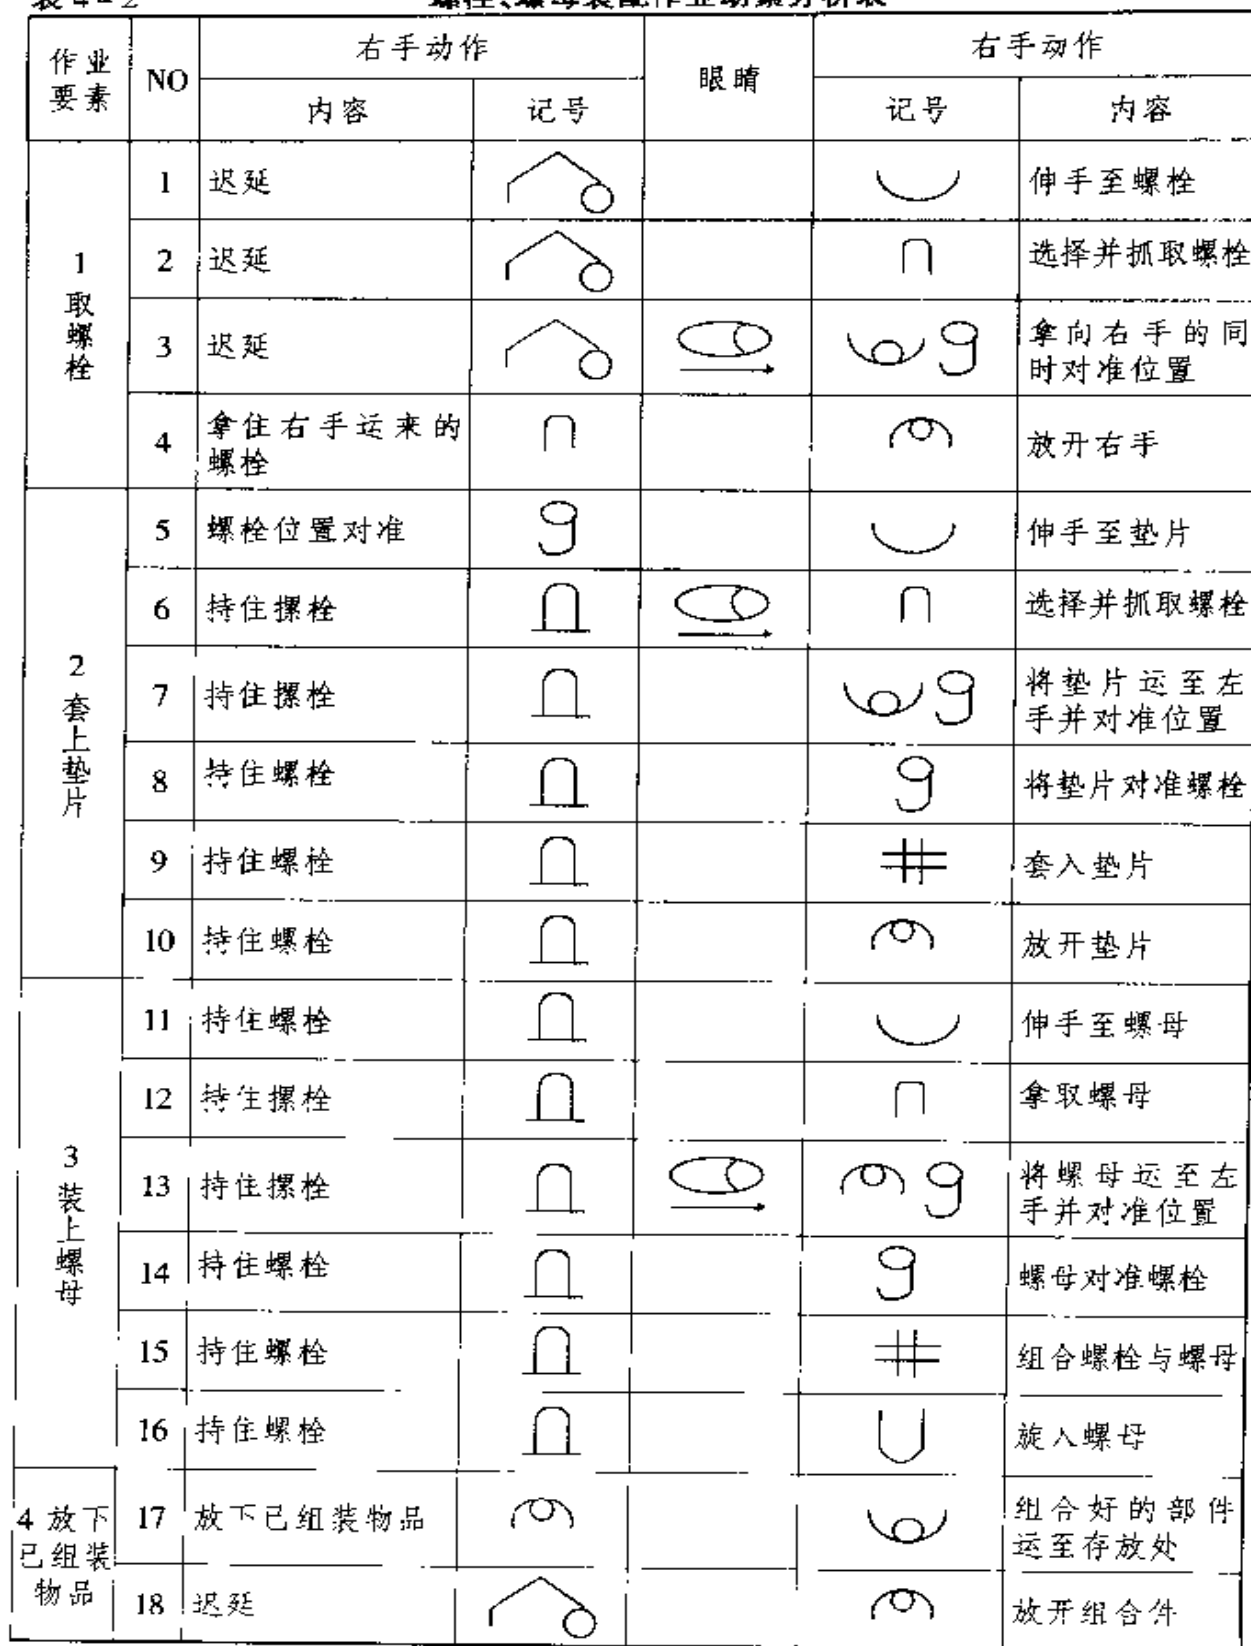 表4-2 螺栓、螺母装配作业动素分析表
作业要素 NO 右手动作 眼睛 右手动作
内容 记号 记号 内容
1 取螺栓
1 迟延 伸手至螺栓
2 迟延 选择并抓取螺栓
3 迟延 拿向右手的同
时对准位置
4 拿住右手运来的
螺栓 放开右手
2 套上垫片
5 螺栓位置对准 伸手至垫片
6 持住摞栓 选择并抓取螺栓
7 持住摞栓 将垫片运至左
手并对准位置
8 持住螺栓 将垫片对准螺栓
9 持住螺栓 套入垫片
10 持住螺栓 放开垫片
3 装上螺母
11 持住螺栓 伸手至螺母
12 持住摞栓 拿取螺母
13 持住摞栓 将螺母运至左
手并对准位置
14 持住螺栓 螺母对准螺栓
15 持住螺栓 组合螺栓与螺母
16 持住螺栓 旋入螺母
4 放下
已组装
物品
17 放下已组装物品 组合好的部件
运至存放处
18 迟延 放开组合件